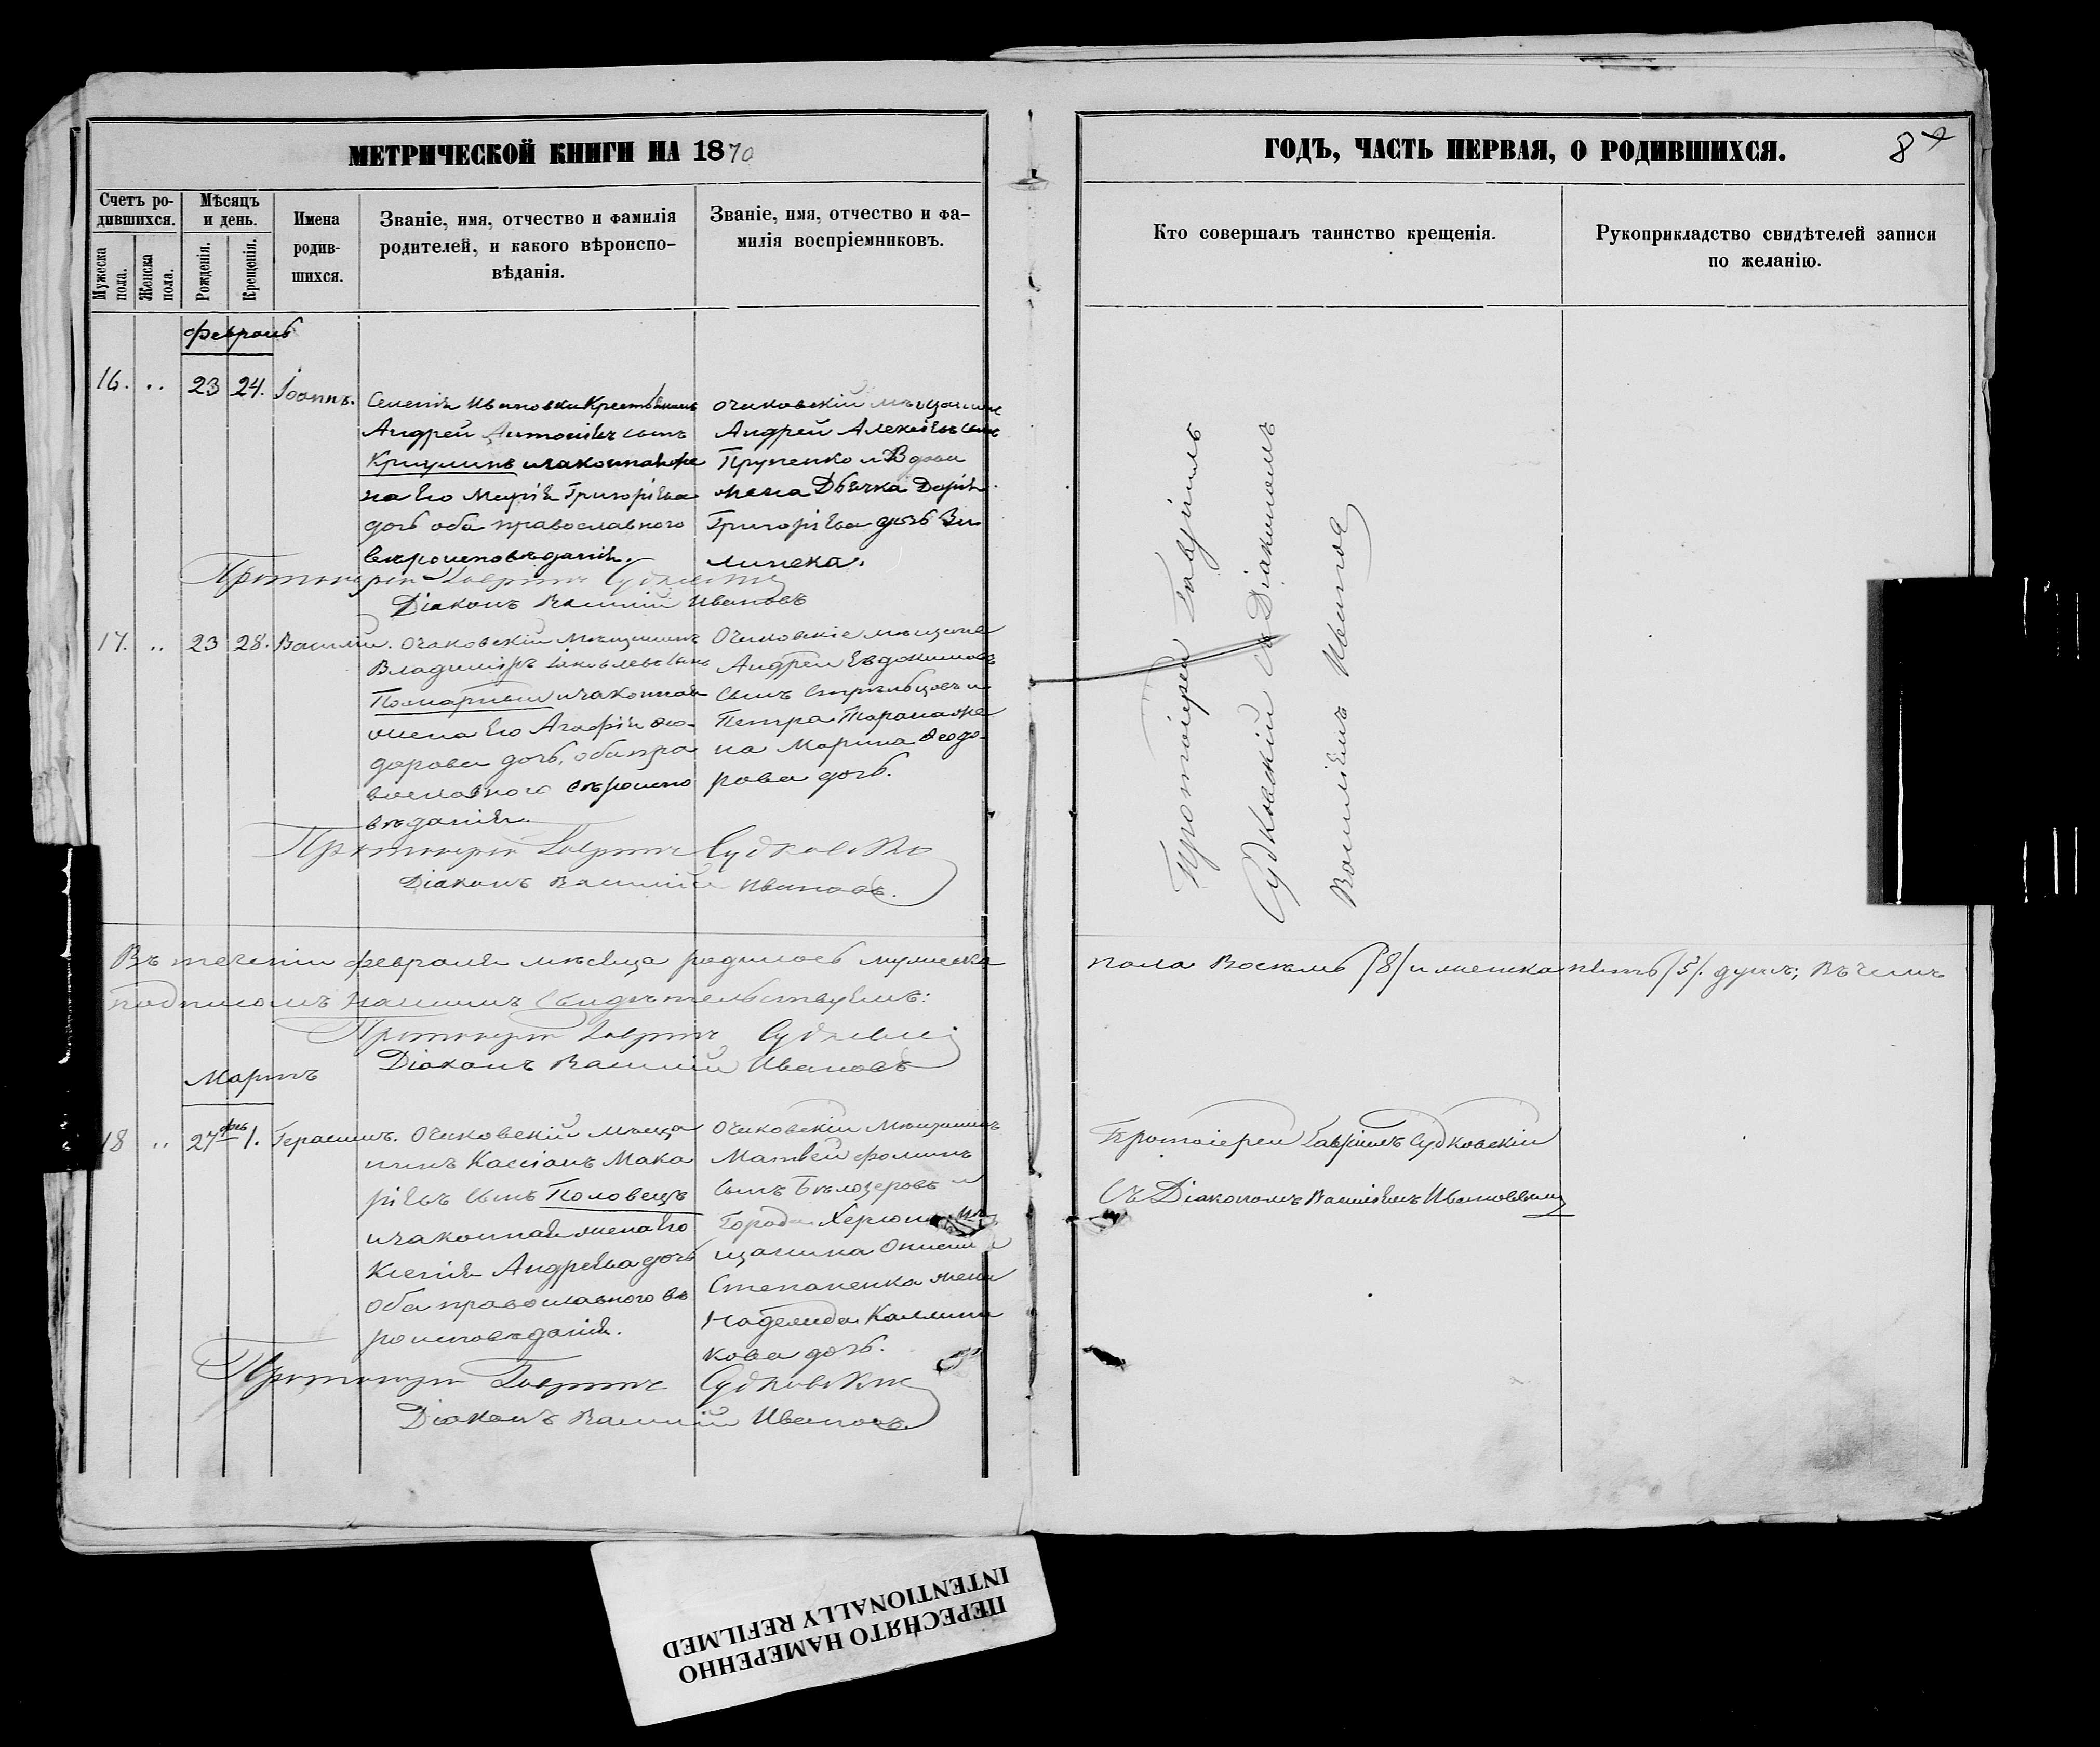 МЕТРИЧЕСКОЙ КНИГИ НА 1870
Счетъ ро-
дившихся.
Мужеска
пола.
Женска
пола.
Мѣсяцъ
и день.
Рожденія.
Крещенія.
Имена
родив-
шихся.
Званіе, имя, отчество и фамилія
родителей, и какого вѣроиспо-
вѣданія.
Званіе, имя, отчество и фа-
милія воспріемниковъ.
Февраль
16. .. 23 24. Іоаннъ.
Селенія Ивановки Крестьянинъ
Андрей Антоніевъ сынъ
и законная же
на его Марія Григоріева
дочь оба православного
вѣроисповѣданія.
очаковскій мѣщанинъ
Андрей Алексіевъ сынъ
и Вдова
Дарія
Григоріева дочь
Протоіерей Гавріилъ Судковскій
Діаконъ Василій Ивановъ
17. .. 23 28. Василій.
Очаковскій Мѣщанинъ
Владиміръ Іаковлевъ сынъ
и законная
жена его Агафія Ѳео-
дорова дочь, оба пра
вославного вѣроиспо
вѣданія.
Очаковскіе мѣщане
Андрей Евдокимовъ
сынъ Стрѣльцовъ и
Петра Тарана же
на Марина Ѳеодо-
рова дочь.
Протоіерей Гавріилъ Судковскій
Діаконъ Василій Ивановъ.
Въ теченіи февраля мѣсяца родилось мужеска
подписомъ нашимъ свидѣтельствуемъ:
Протоіерей Гавріилъ Судковскій
Діаконъ Василій Ивановъ
Мартъ
18 .. 27 фев 1. Герасимъ.
Очаковскій мѣща
нинъ Кассіанъ Мака
ріевъ сынъ Половецъ
и законная жена его
Ксенія Андреева дочь
оба православного вѣ
роисповѣданія.
Очаковскій Мѣщанинъ
Матвей Фоминъ
сынъ Бѣлозеровъ и
города Херсона мѣ
щанина
Степаненка жена
Надежда Каллини
кова дочь.
Протоіерей Гавріилъ Судковскій
Діаконъ Василій Ивановъ.
ГОДЪ, ЧАСТЬ ПЕРВАЯ, О РОДИВШИХСЯ.
Кто совершалъ таинство крещенія.
Рукоприкладство свидѣтелей записи
по желанію.
Протоіерей Гавріилъ
Судковскій съ Діакономъ
Василіемъ Ивановъ
пола Восемь /8/ и женска пять /5/. душъ; Въ чемъ
Протоіерей Гавріилъ Судковскій
Съ Діакономъ Василіемъ Ивановымъ
ПЕРЕСНЯТО НАМЕРЕННО
INTENTIONALLY REFILMED